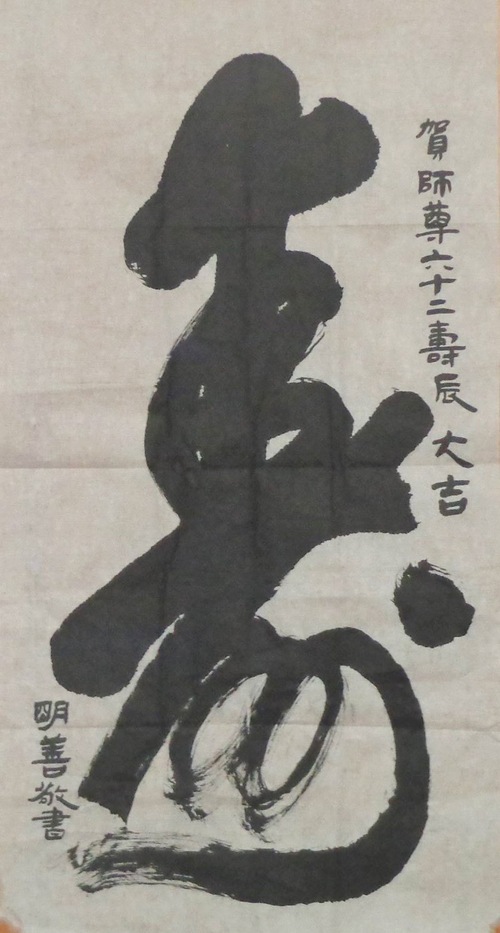 賀師尊六十二壽辰 大吉
壽
明善敬書